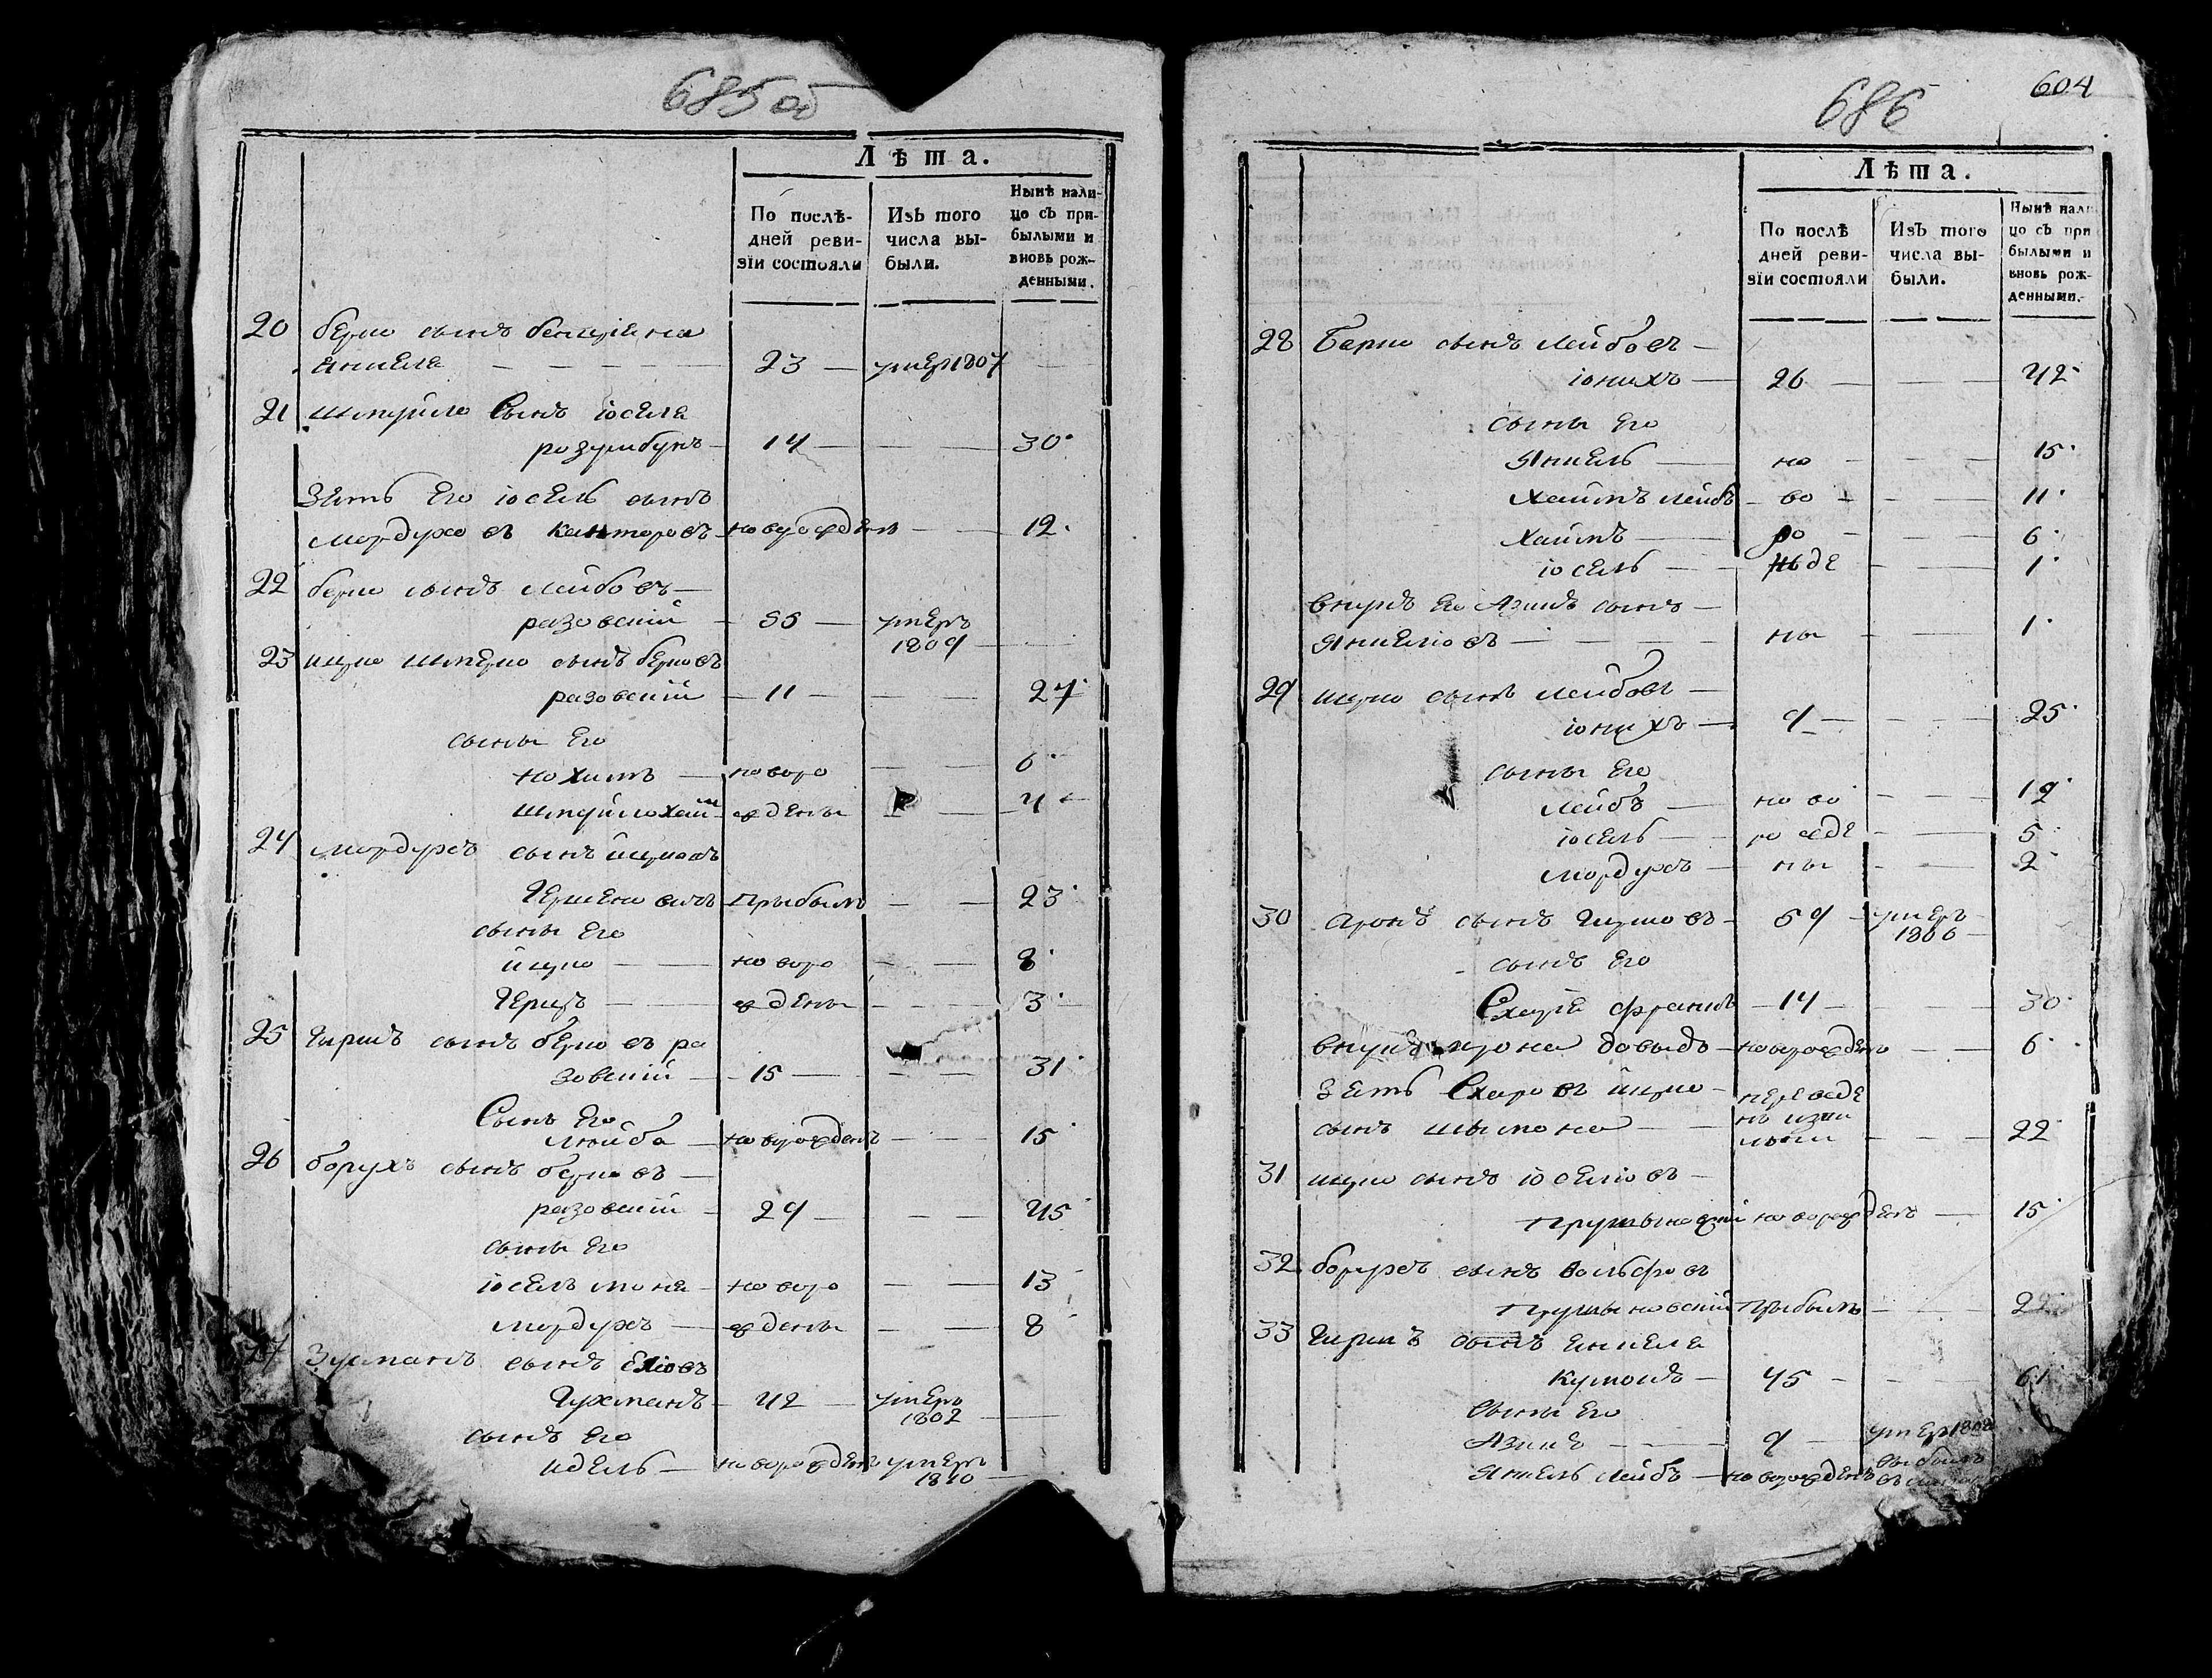 685 об
Лѣта.
По послѣ-
дней реви-
зіи состояли
Изъ того
числа вы-
были.
Нынѣ нали-
цо съ при-
былыми и
вновь рож-
денными.
20 берко сынъ
янкеля — 23 — умеръ 1807
21 шмуйло Сынъ іоселя
розумбукъ — 14 — 30
Зять Его іосель сынъ
мордухов канторовъ — новорожденъ — 12
22 берко сынъ лейбовъ —
разовскій — 55 — умеръ
1809
23 шмерко сынъ берковъ
разовскій — 11 — 27
сыны Его
нохимъ — новоро — 6
шмуйлохаим — жденны — 4
24 мордухъ сынъ ицковъ
Гершековичъ — прибылъ — 23
сыны Его
ицко — новоро — 8
Герцъ — жденны — 3
25 Гиршъ сынъ берковъ ра
зовскій — 15 — 31
Сынъ Его
лейба — новорожденъ — 15
26 борухъ сынъ берковъ —
разовскій — 29 — 45
сыны Его
іосель мона — новоро — 13
мордухъ — жденны — 8
27 Зусманъ сынъ Еліовъ
Гухманъ — 42 — умеръ
1802
сынъ Его
идель — новорожденъ умеръ
1810
686
604
Лѣта.
По послѣ
дней реви-
зіи состояли
Изъ того
числа вы-
были.
Нынѣ нали
цо съ при
былыми и
вновь рож-
денными.
28 Берко сынъ лейбовъ —
іонихъ — 26 — 42
сыны Его
Янкель — но — 15
Хаимъ лейбъ — во — 11
Хаимъ — ро — 6
іосель — жде — 1
внукъ Его Азикъ сынъ —
Янкеліовъ — ны — 1
29 ицко сынъ лейбовъ —
іонихъ — 9 — 25
сыны Его
лейбъ — ново — 12
іосель — рожде — 5
мордухъ — ны — 2
30 Аронъ сынъ Гиршовъ — 59 — умеръ
1806
сынъ Его
Схарія франкъ — 14 — 30
внукъ Арона довыдъ — новорожденъ — 6
Зять Схаровъ ицко — переведе
сынъ шымона — нъ изъ — 22
31 ицко сынъ іоселіовъ —
новорожденъ — 15
32 борухъ сынъ вольфовъ
прибылъ — 22
33 Гиршъ сынъ янкеля
— 45 — 61
Сыны Его
Азикъ — 9 — умеръ 1808
Янкель лейбъ — новорожденъ выбылъ